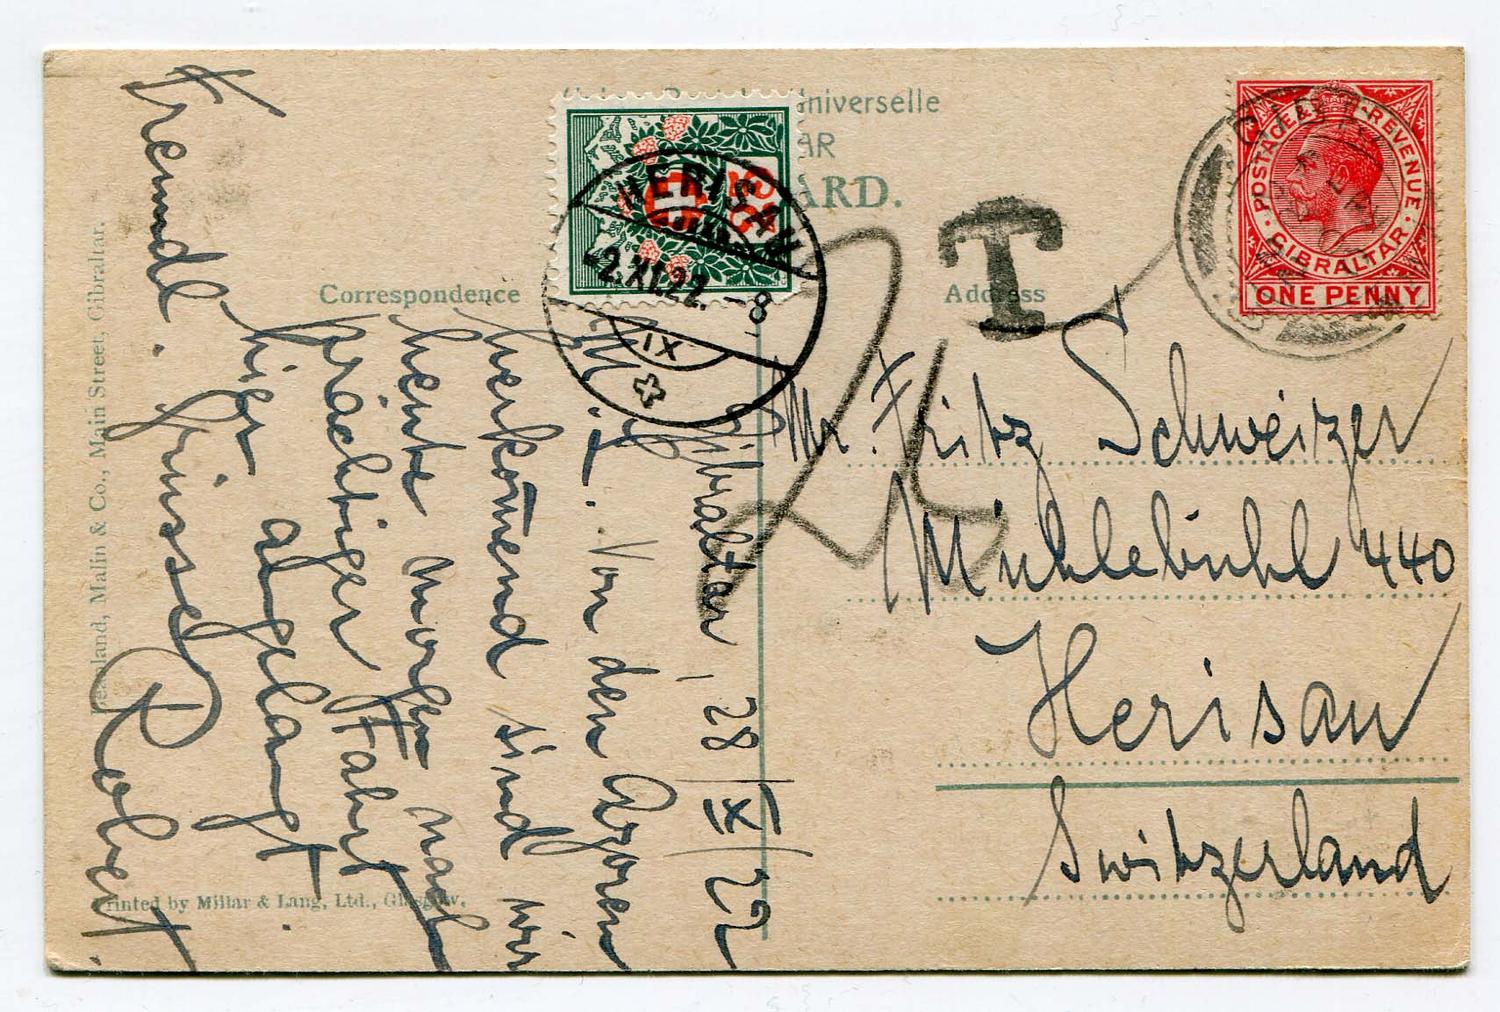 Universelle
AR
ARD.
Correspondence
Address
T
25
POSTAGE & REVENUE
GIBRALTAR
ONE PENNY
25
HERISAU
-2.XI.22.-8
IX
Mr. Fritz Schweizer
Mühlebühl 440
Herisau
Switzerland
Gibraltar, 28/X/22
M. L. Von den Azoren
herkom̄end sind wir
heute morgen nach
prächtiger Fahrt
hier angelangt.
Freundl. Grüsse
Robert.
Beanland, Malin & Co., Main Street, Gibraltar.
Printed by Millar & Lang, Ltd., Glasgow.